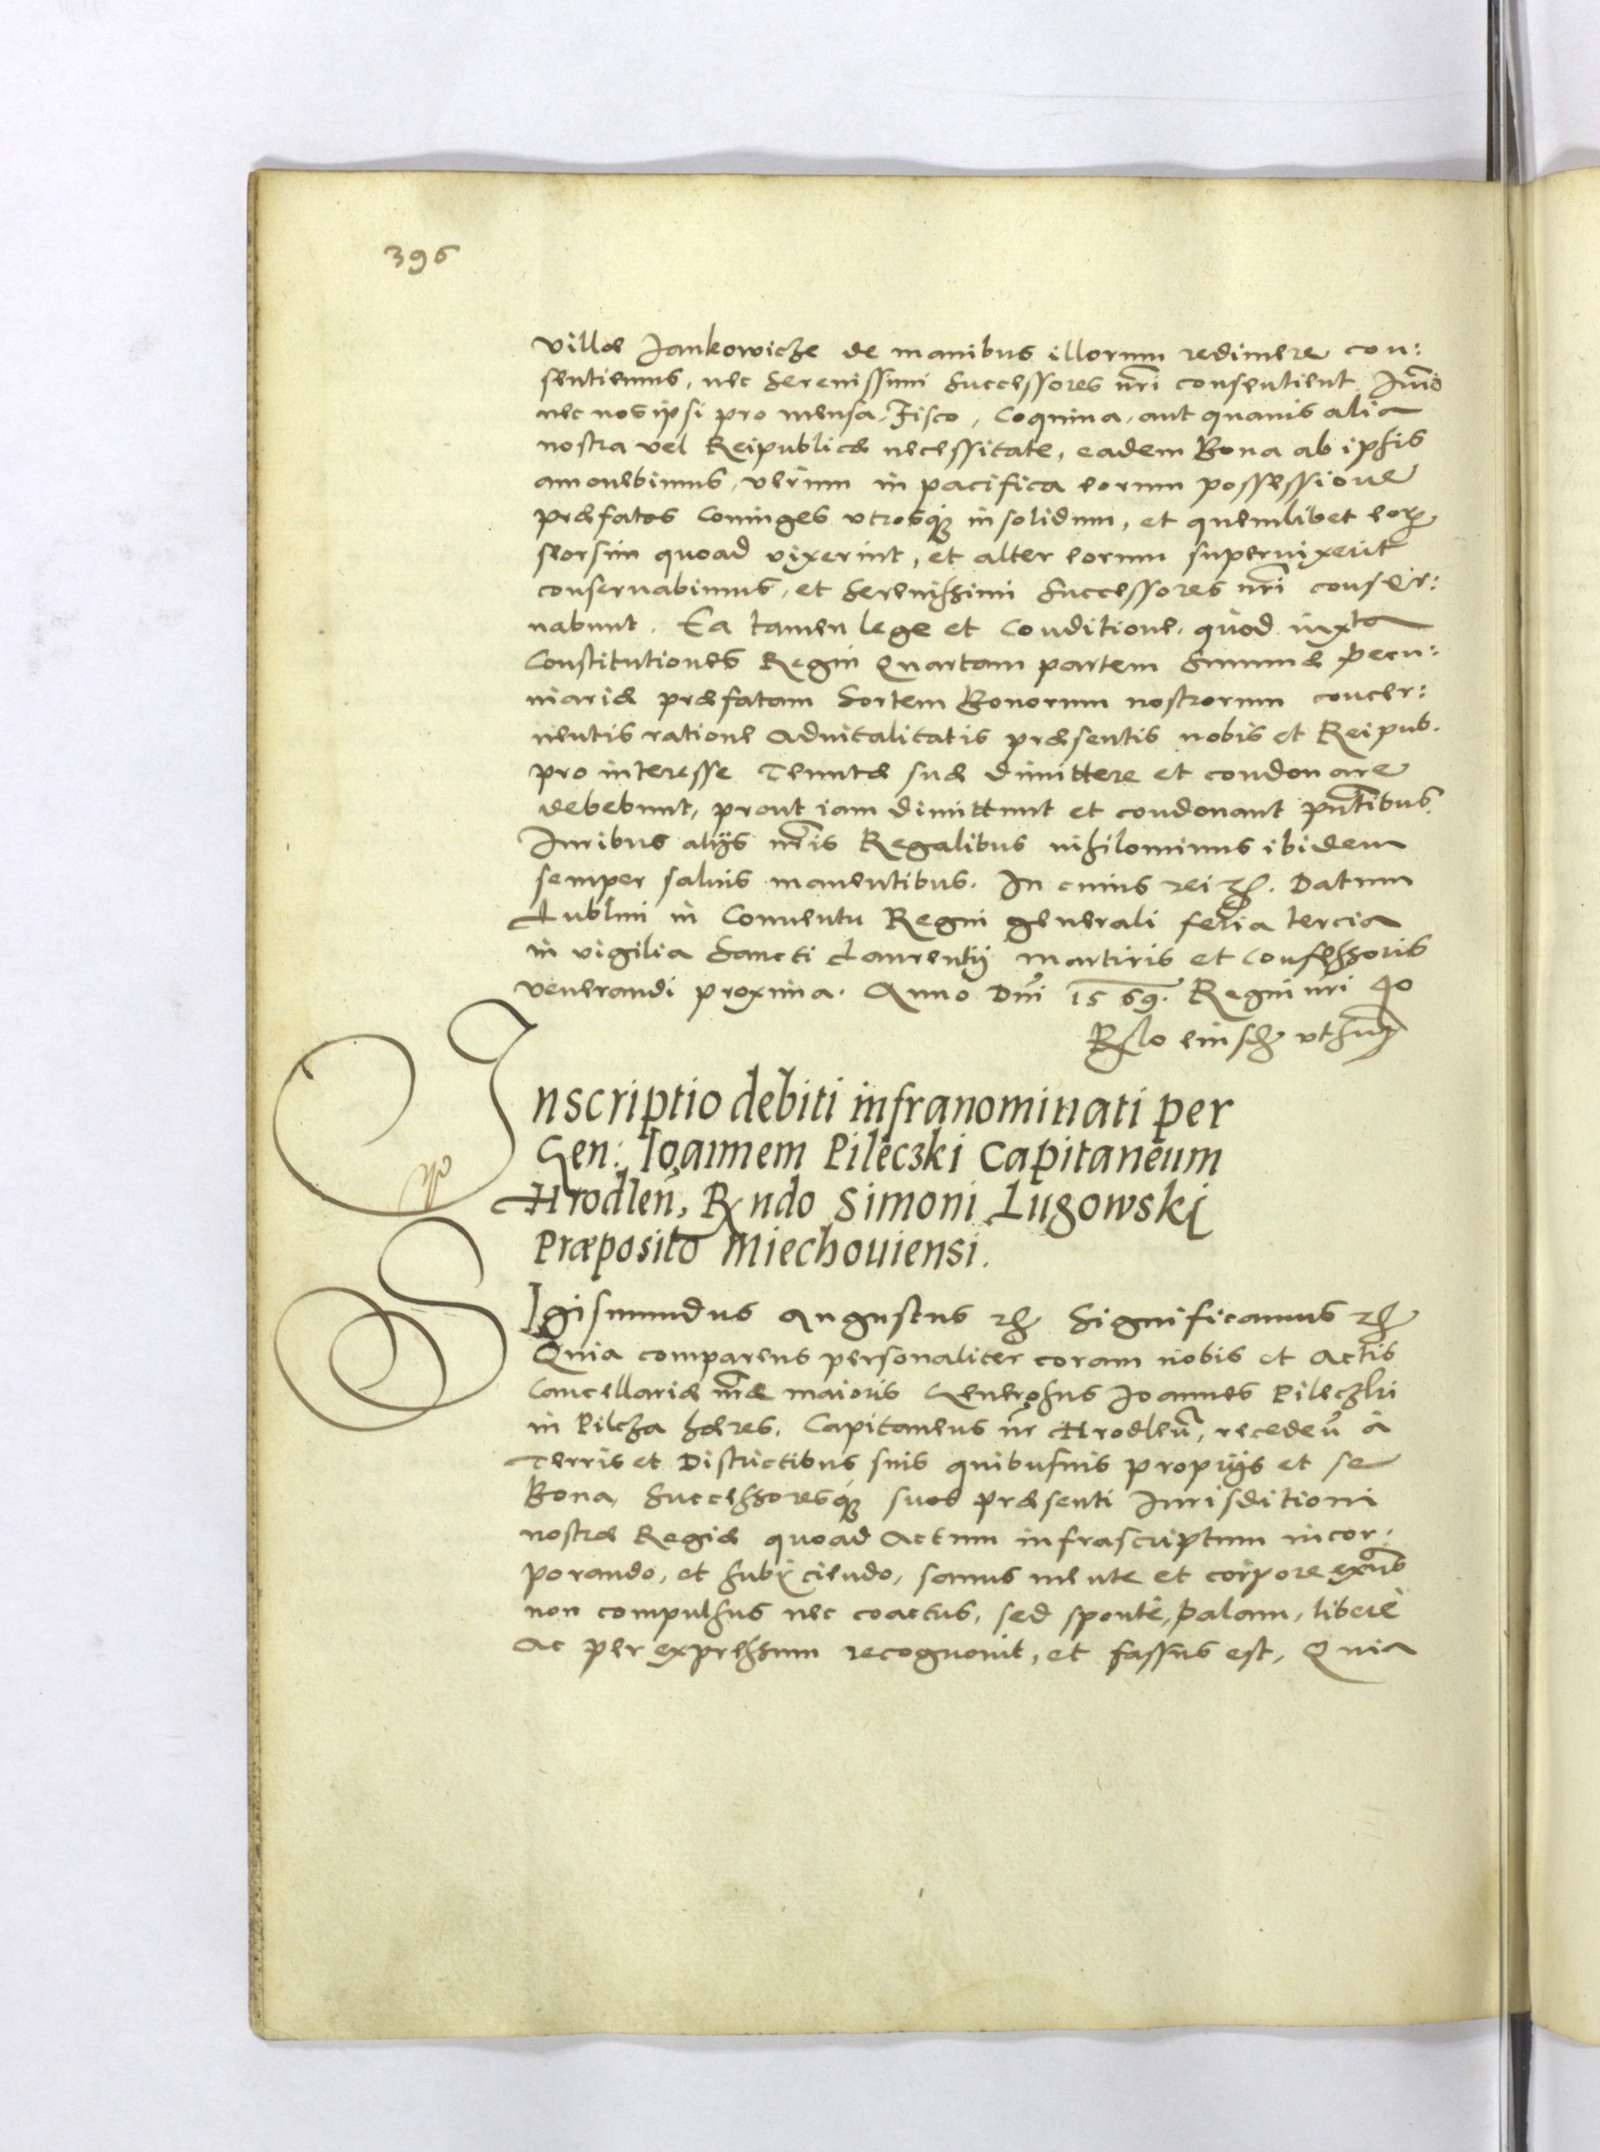 396
villæ Jankowicze de manibus illorum redimere con:
sentiemus, nec Serenissimi Successores nri consentient. Imo
nec nos ipsi pro mensa, Fisco, Coquina, aut quavis alia
nostra vel Reipublicæ necessitate, eadem Bona ab ipsis
amovebimus, verum in pacifica eorum possessione
præfatos Coniuges utrosque in solidum, et quemlibet eorum
seorsim quoad vixerint, et alter eorum supervixerit
conservabimus, et Serenissimi Successores nri conser:
nabunt. Ea tamen lege et Conditione, quod iuxta
Constitutiones Regni Quartam partem Summæ pecu:
niariæ præfatam Sortem Bonorum nostrorum concer:
nentis ratione Advitalitatis præsentis nobis et Reipub.
pro interesse Tenutæ suæ dimittere et condonare
debebunt, prout iam dimittunt et condonant pntibus
Iuribus alijs nris Regalibus nihilominus ibidem
semper salvis manentibus. In cuius rei &c. Datum
Lublini in Conventu Regni generali feria tercia
in vigilia Sancti Laurentij Martiris et Confessoris
venerandi proxima. Anno Dni 1569. Regni nri 40
Rlo eiusd ut supra
Inscriptio debiti infranominati per
Gen: Ioannem Pileczki Capitaneum
Hrodlen, Rndo Simoni Lugowski
Præposito Miechoviensi.
Sigismundus Augustus &c Significamus &c
Quia comparens personaliter coram nobis et Actis
Cancellariæ nræ maioris Generosus Joannes Pileczki
in Pilcza hæres, Capitaneus nr Hrodlen, receden à
Terris et Districtibus suis quibusvis proprijs et se
Bona, Successoresque suos præsenti Iurisditioni
nostræ Regiæ quoad Actum infrascriptum incor:
porando, et subijciendo, sanus mente et corpore exns
non compulsus nec coactus, sed sponte, palam, liberè
Ac per expressum recognovit, et fassus est, Quia